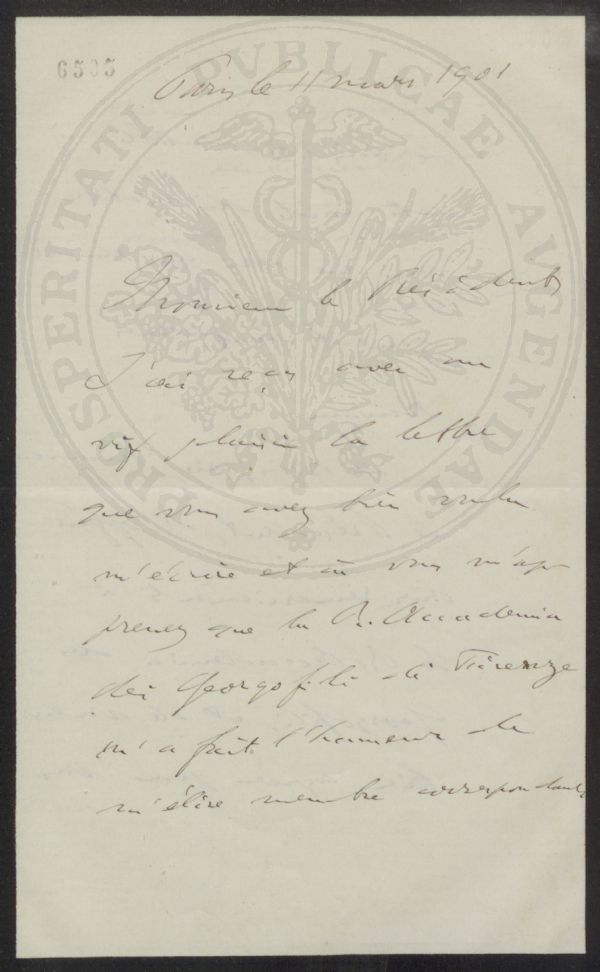 6505
Paris le 11 mars 1901
PROSPERITATI PVBLICAE AVGENDAE
Monsieur le Président
J'ai reçu avec un
vif plaisir la lettre
que vous avez bien voulu
m'écrire et où vous m'ap
prenez que la R. Accademia
dei Georgofili di Firenze
m'a fait l'honneur de
m'élire membre correspondant,